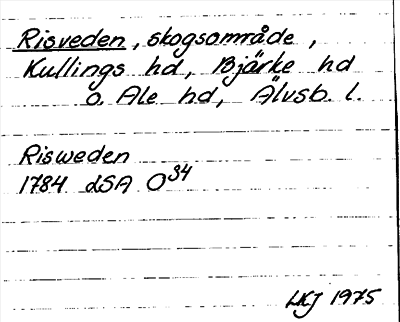 Risveden, skogsområde,
Kullings hd, Bjärke hd
o. Ale hd, Älvsb. l.
Risweden
1784 LSA O34
LKJ 1975